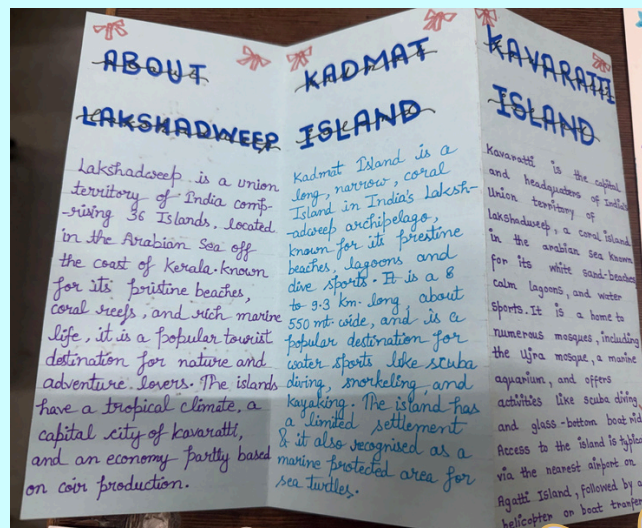 ABOUT
LAKSHADWEEP
Lakshadweep is a union
territory of India comp-
-rising 36 Islands, located
in the Arabian Sea off
the coast of Kerala. known
for its pristine beaches,
coral reefs, and rich marine
life, it is a popular tourist
destination for nature and
adventure lovers. The islands
have a tropical climate, a
capital city of kavaratti,
and an economy partly based
on coir production.
KADMAT
ISLAND
Kadmat Island is a
long, narrow, coral
Island in India's Laksh-
-adweep archipelago,
known for its prestine
beaches, lagoons and
dive sports. It is a 8
to 9.3 km. long about
550 mt. wide, and is a
popular destination for
water sports like scuba
diving, snorkeling, and
kayaking. The island has
a limited settlement
& it also recognised as a
marine protected area for
sea turtles.
KAVARATTI
ISLAND
Kavaratti is the capital
and headquaters of India's
Union territory of
lakshadweep, a coral island
in the arabian sea known
for its white sand-beaches
calm lagoons, and water
sports. It is a home to
numerous mosques, including
the Ujra mosque, a marine
aquarium, and offers
activities like scuba diving
and glass-bottom boat
Access to the island is
via the nearest airport on
Agatti Island, followed by a
helicopter or boat